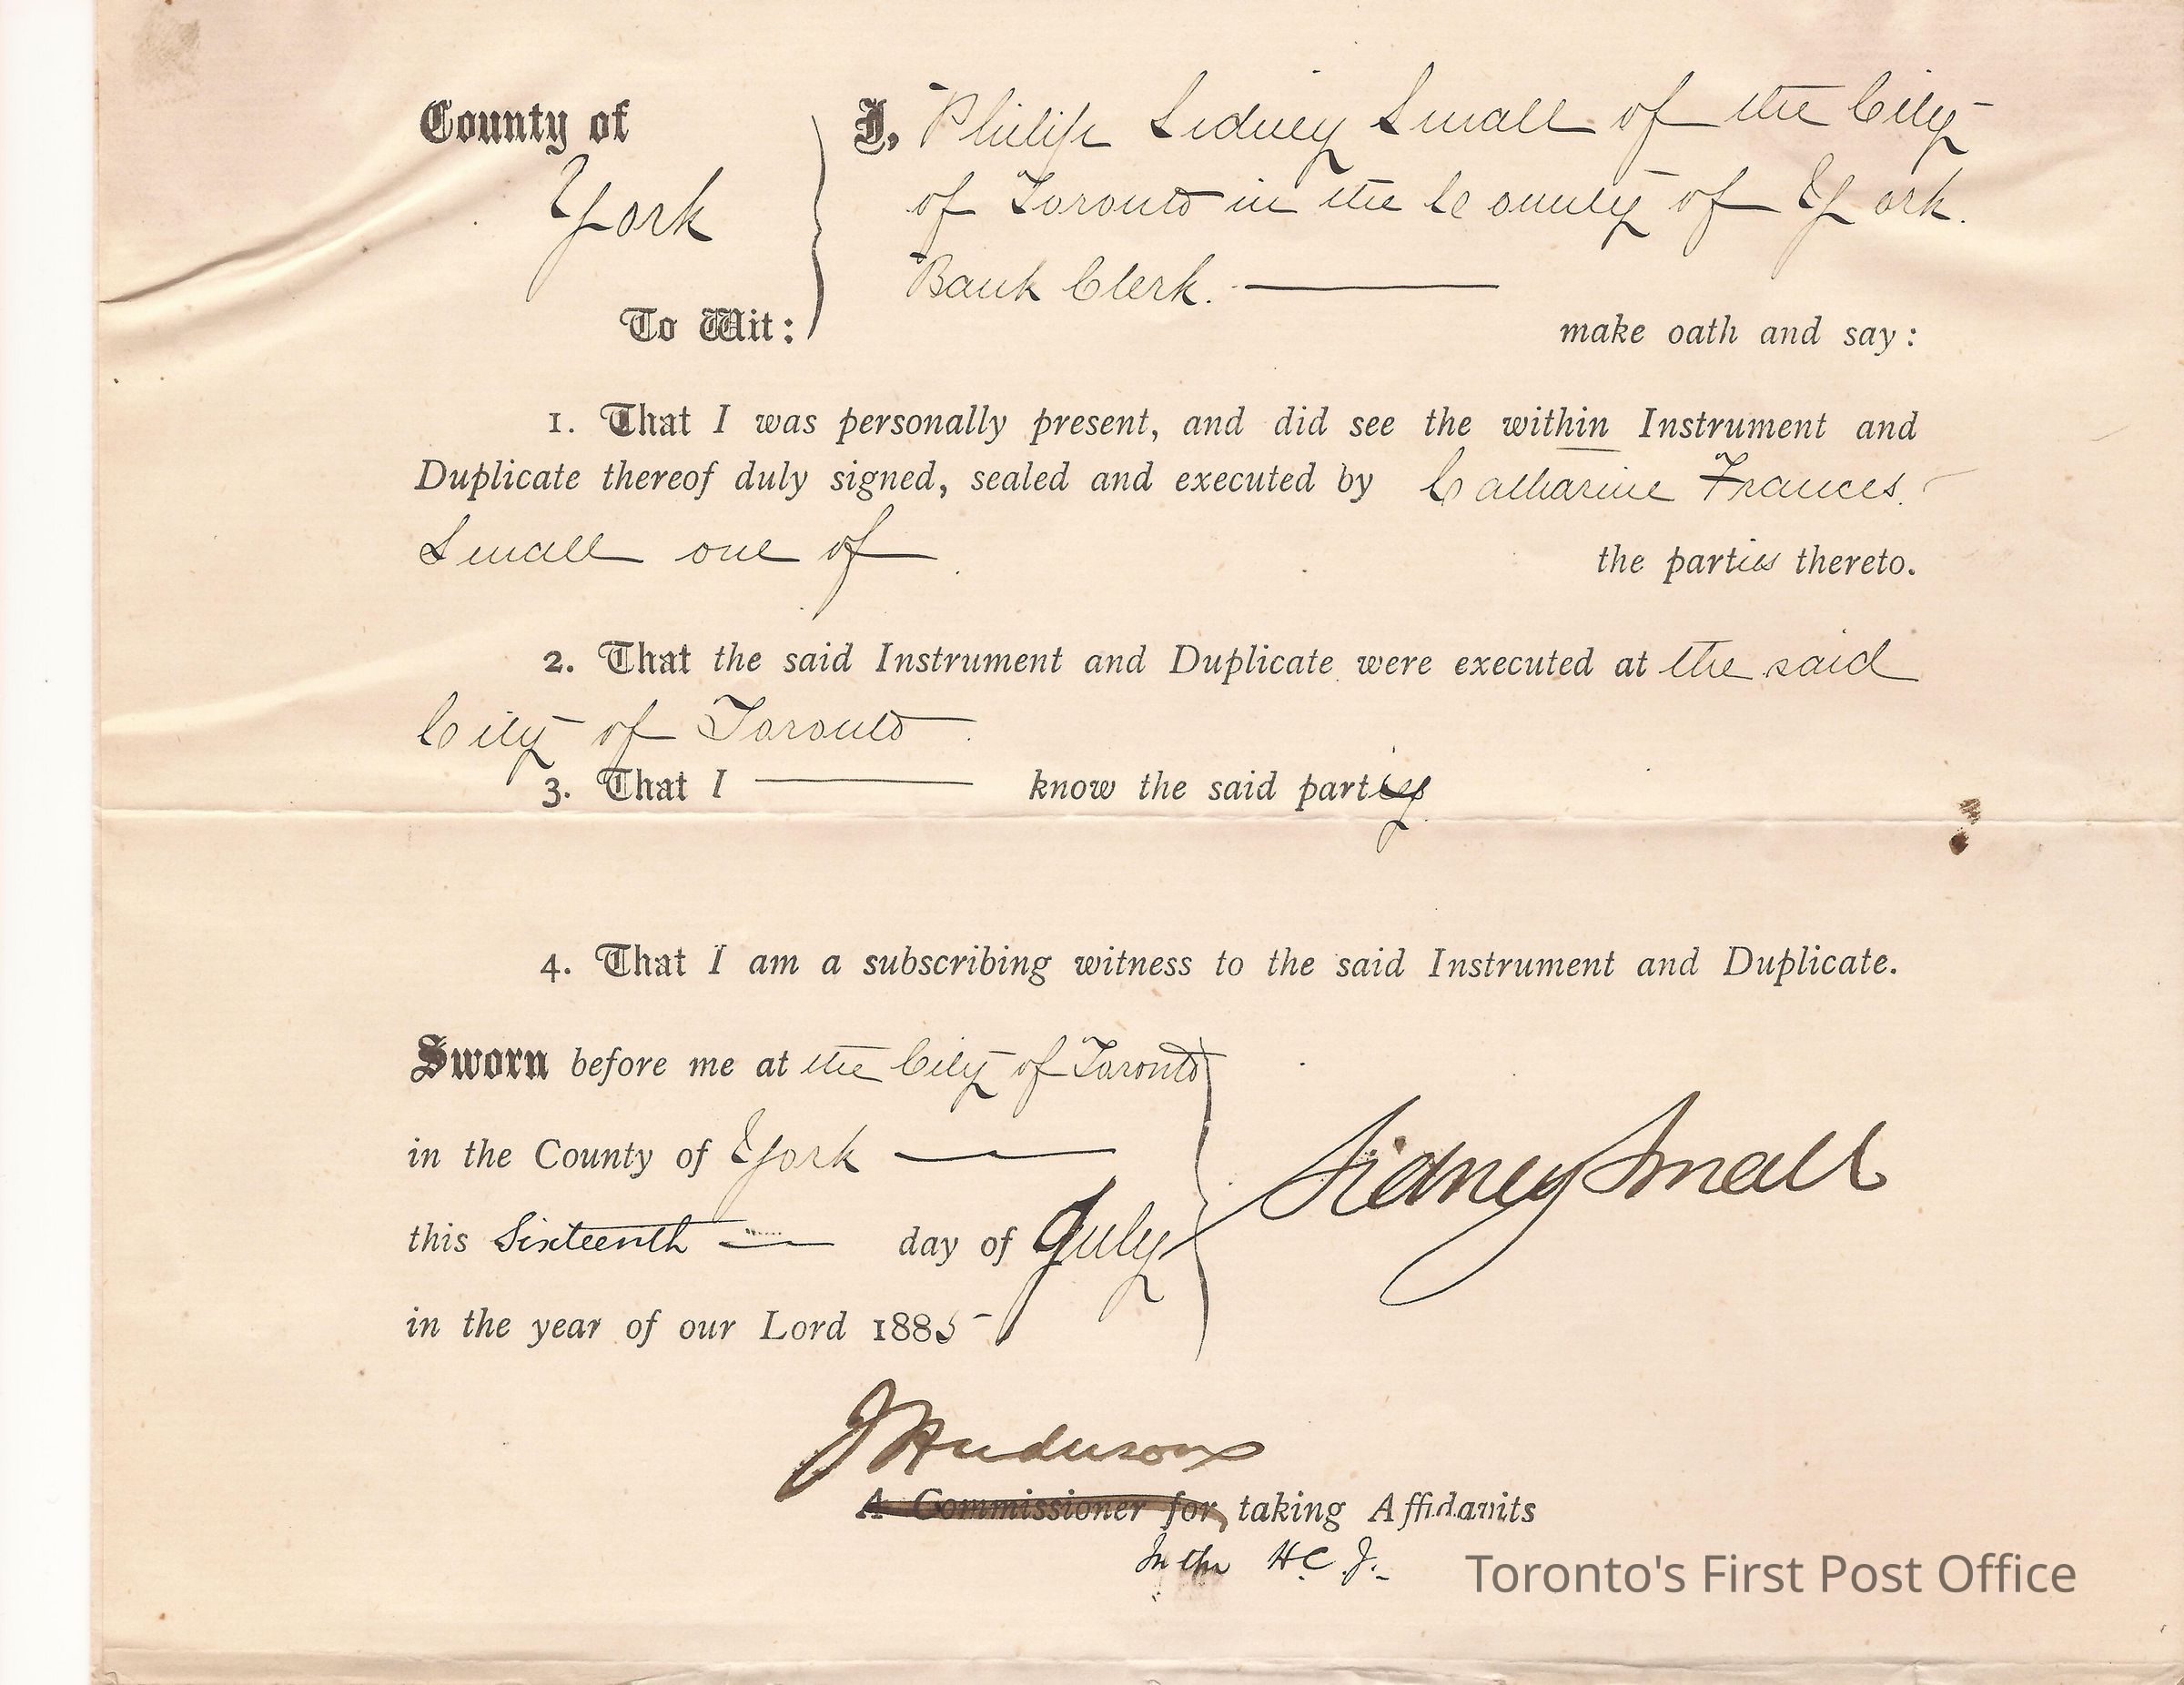 County of
York
To Wit:
I, Philip Sidney Small of the City
of Toronto in the County of York.
Bank Clerk.
make oath and say:
1. That I was personally present, and did see the within Instrument and
Duplicate thereof duly signed, sealed and executed by Catharine Frances
Small one of
the parties thereto.
2. That the said Instrument and Duplicate were executed at the said
City of Toronto
3. That I know the said party
4. That I am a subscribing witness to the said Instrument and Duplicate.
Sworn before me at the City of Toronto
in the County of York
this Sixteenth day of July
in the year of our Lord 1885
Sidney Small
A Commissioner for taking Affidavits
In the H.C.J.
Toronto's First Post Office